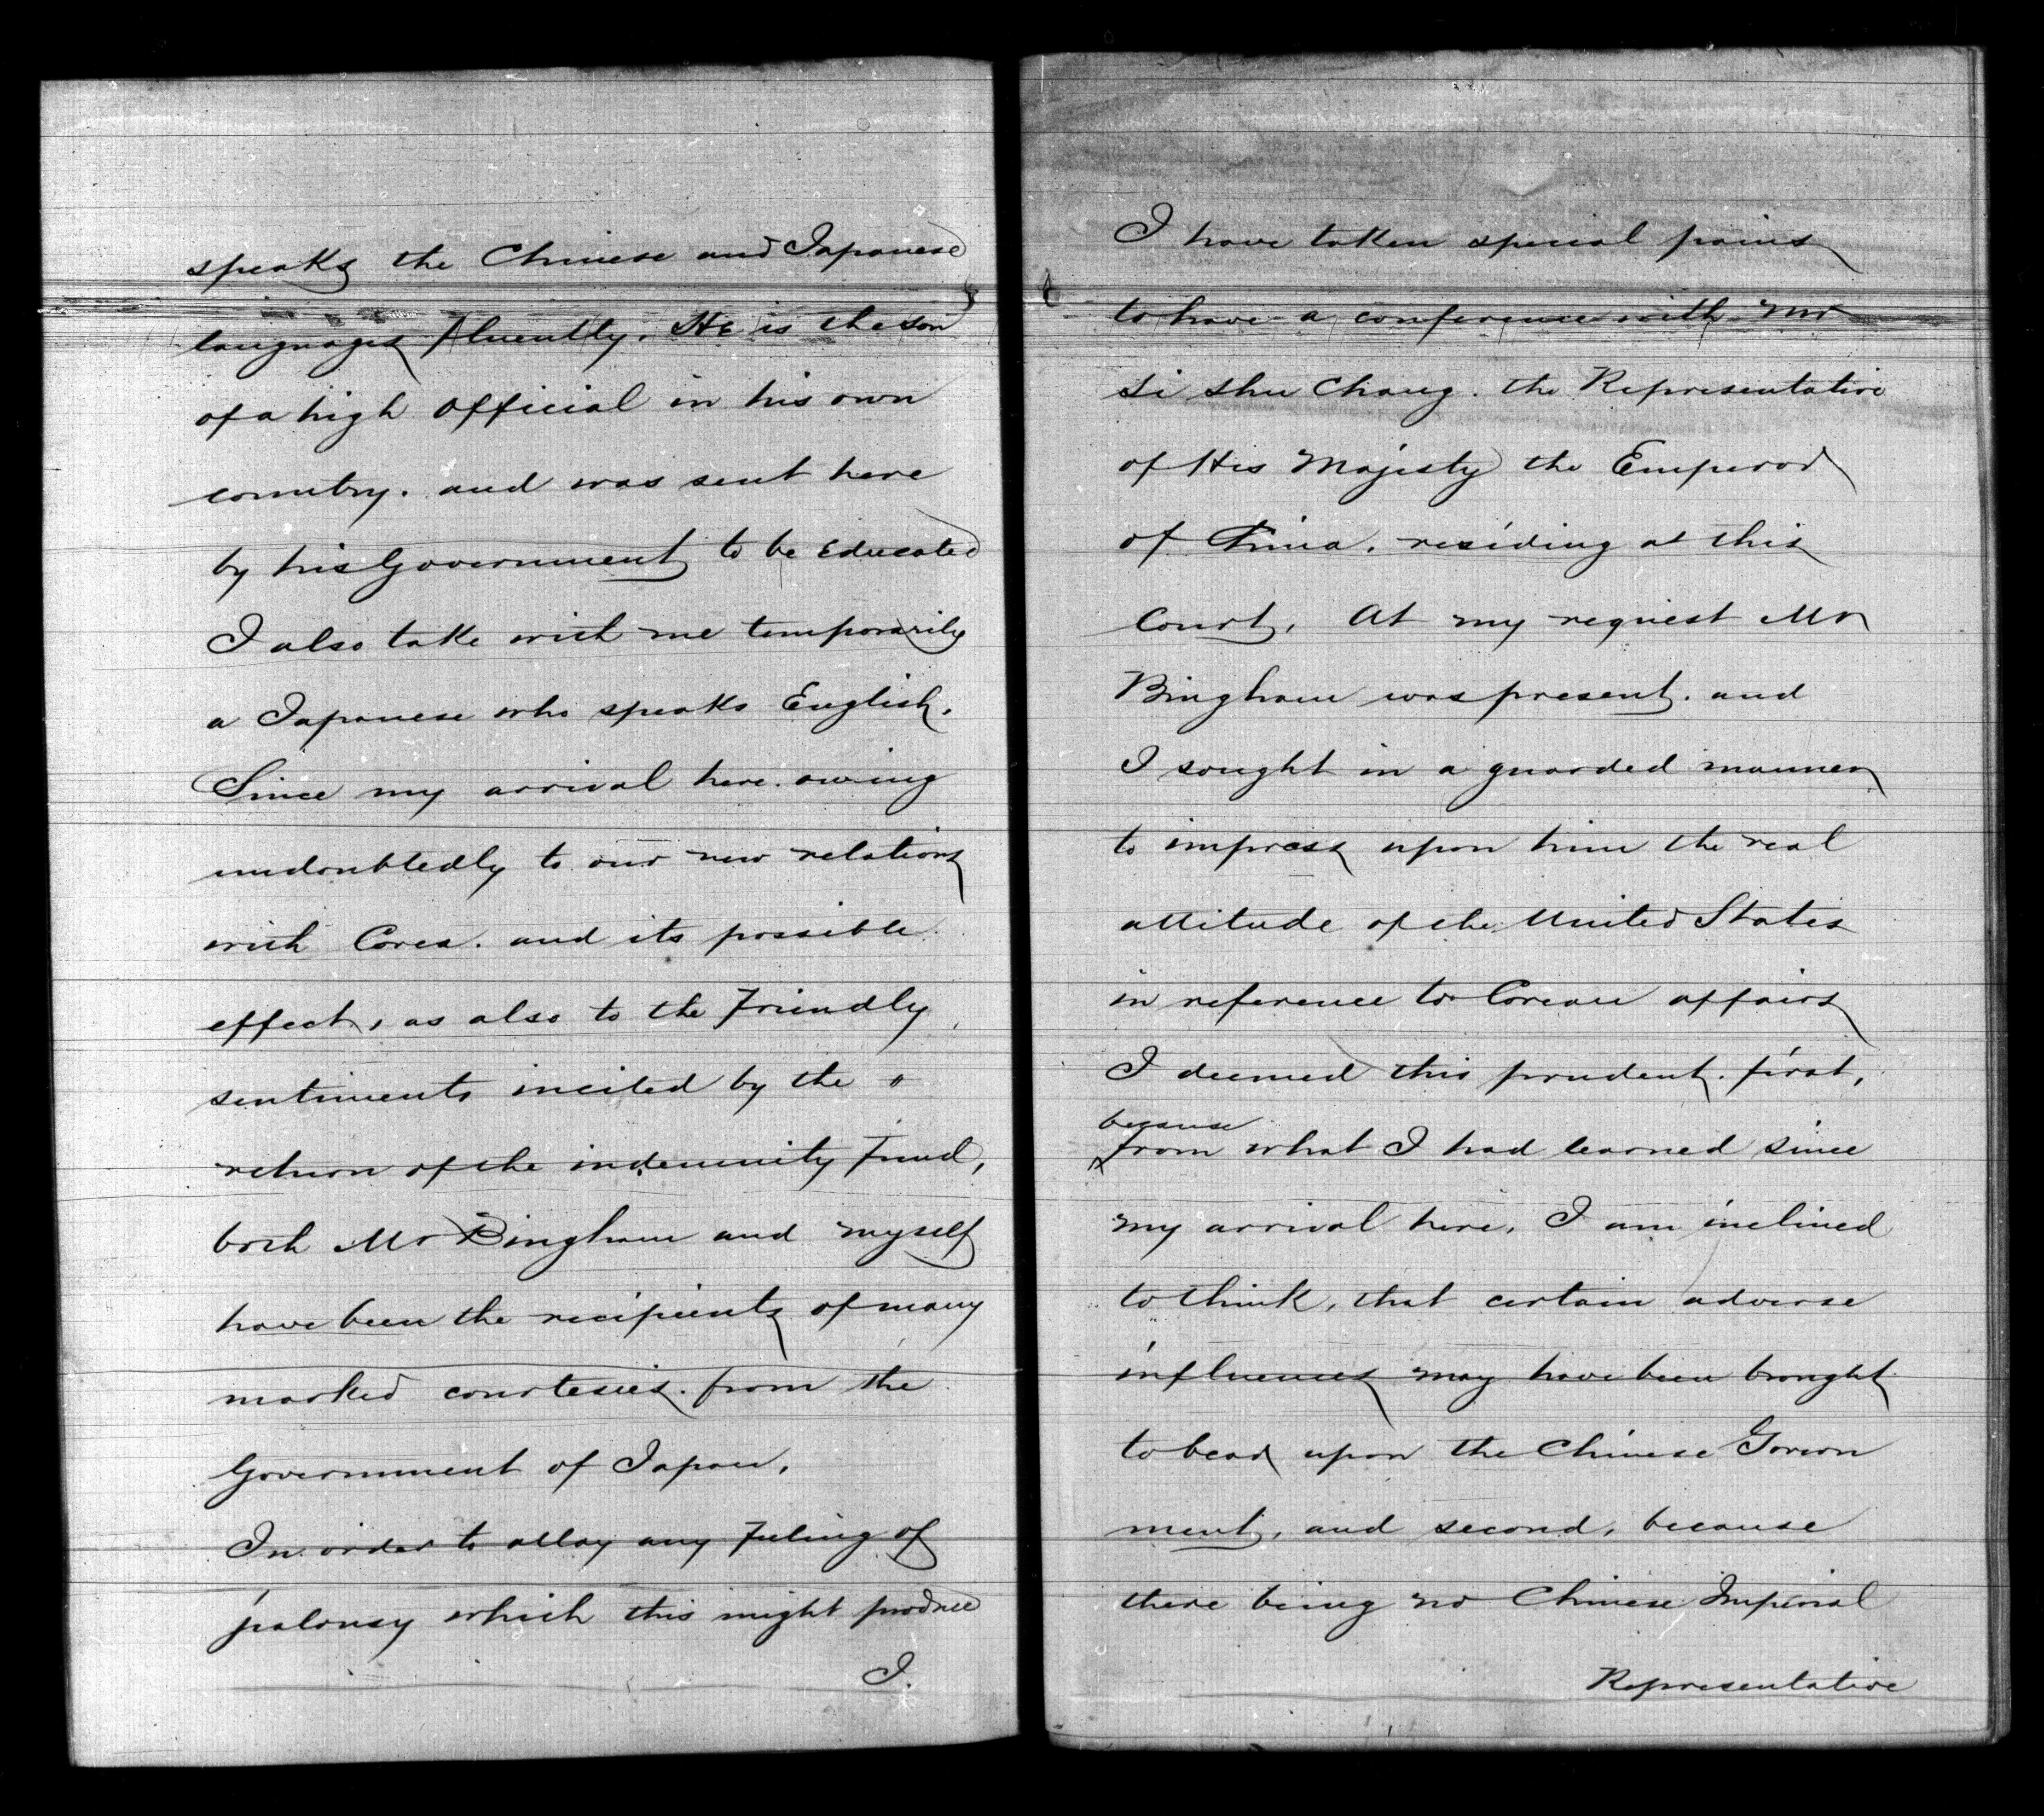 speaks the Chinese and Japanese
languages fluently. He is the son
of a high official in his own
country. and was sent here
by his Government to be Educated
I also take with me temporarily
a Japanese who speaks English.
Since my arrival here. owing
undoubtedly to our new relations
with Corea. and its possible
effect, as also to the Friendly
sentiments incited by the "
return of the indemnity Fund,
both Mr Bingham and myself
have been the recipients of many
marked courtesies. from the
Government of Japan,
In order to allay any Feeling of
jealousy which this might produce
I.
I have taken special pains
to have a conference with Mr
Li Shu Chang. the Representative
of His Majesty the Emperor
of China. residing at this
Court, At my request Mr
Bingham was present. and
I sought in a guarded manner
to impress upon him the real
attitude of the United States
in reference to Corean affairs
I deemed this prudent. first,
because
from what I had learned since
my arrival here, I am inclined
to think, that certain adverse
influences may have been brought
to bear upon the Chinese Govern
ment, and second, because
there being no Chinese Imperial
Representative